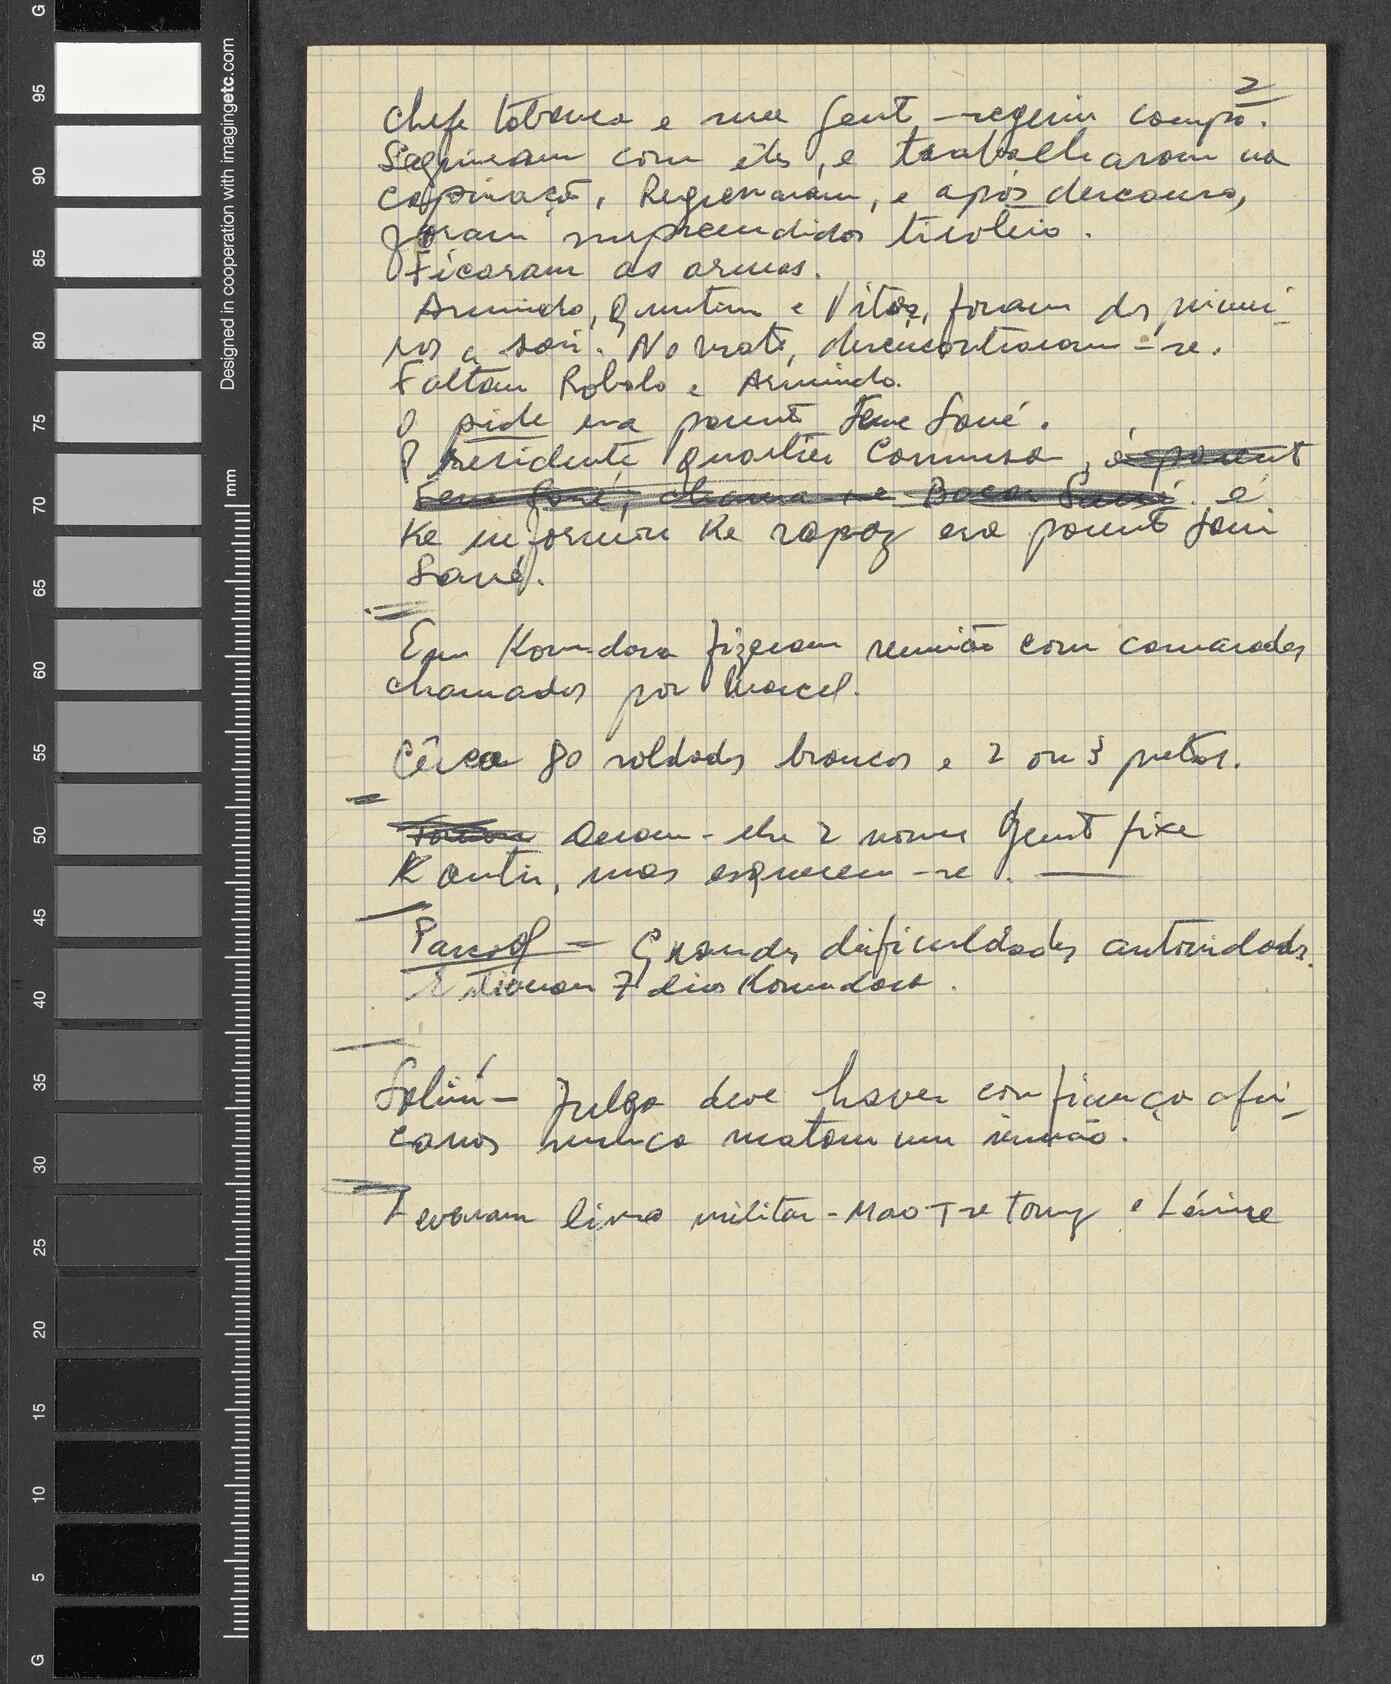 2
chefe tabanca e sua gent seguiu campo.
Seguiram com êles, e trabalharam na
capinaçã, Regressaram, e após descanso,
foram surpreendidos tiroteio.
Ficaram as armas.
Armindo, Quintin e Vitor, foram dos primei-
ros a sair. No mato, desencontraram-se.
Faltam Robalo e Armindo.
O pide era parent Seni Sané.
O Presidente Quartier Comuna, é parent
Seni Sané, chama-se Bacar Sané. é
ke informou ke rapaz era parent Seni
Sané.
Em Koundara fizeram reunião com camaradas
chamados por Marcel.
Cêrca 80 soldados brancos e 2 ou 3 pretos.
Deram-lhe 2 nomes Gent fixe
Kantir, mas esquecem-se.
Pascoal — Grandes dificuldades autoridades.
Estiveram 7 dias Koundara.
Salim — Julga deve haver confiança afri-
canos nunca matam um irmão.
Levaram livro militar - Mao Tse Toung e Lénine
Designed in cooperation with imagingetc.com
mm
G
95
90
85
80
75
70
65
60
55
50
45
40
35
30
25
20
15
10
5
G